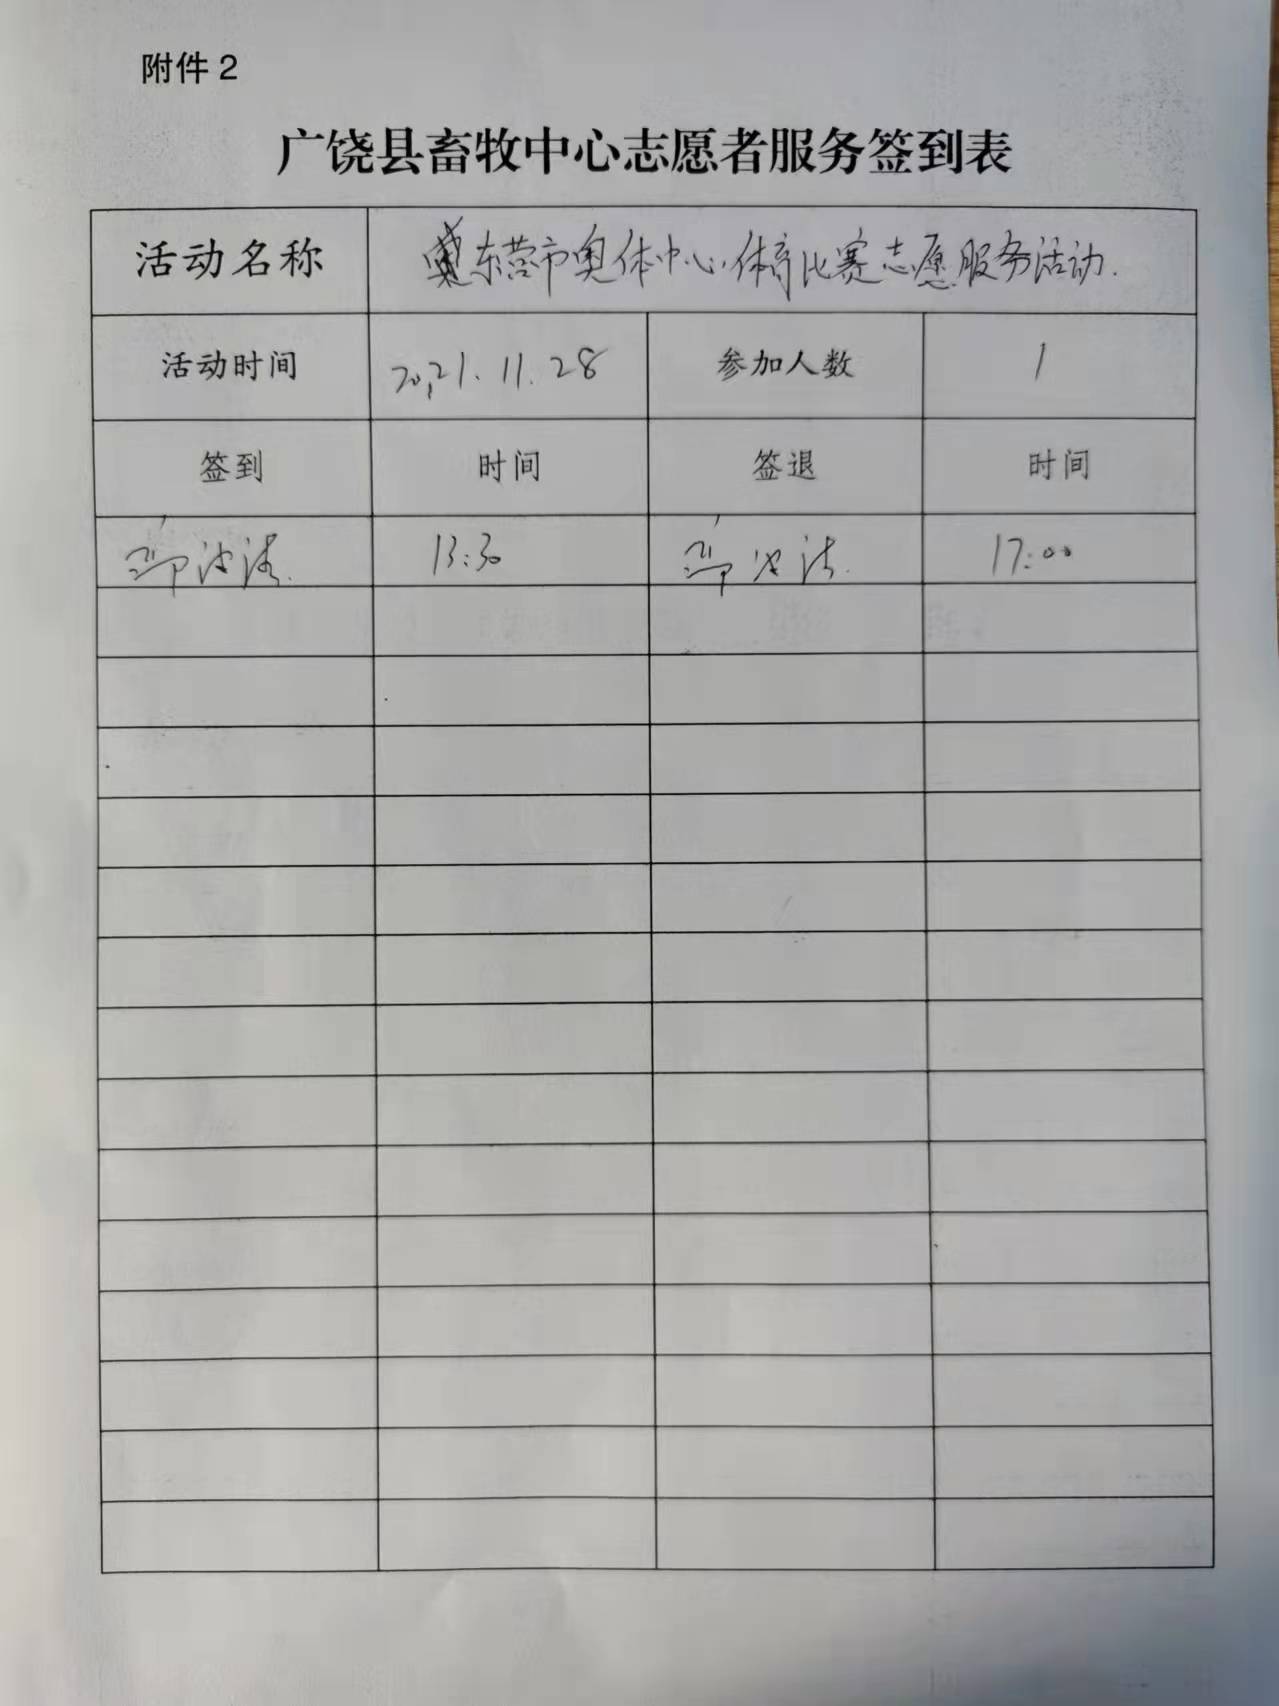 附件2
广饶县畜牧中心志愿者服务签到表
活动名称 东营市奥体中心体育比赛志愿服务活动.
活动时间 2021.11.28 参加人数 1
签到 时间 签退 时间
13:30 17:00